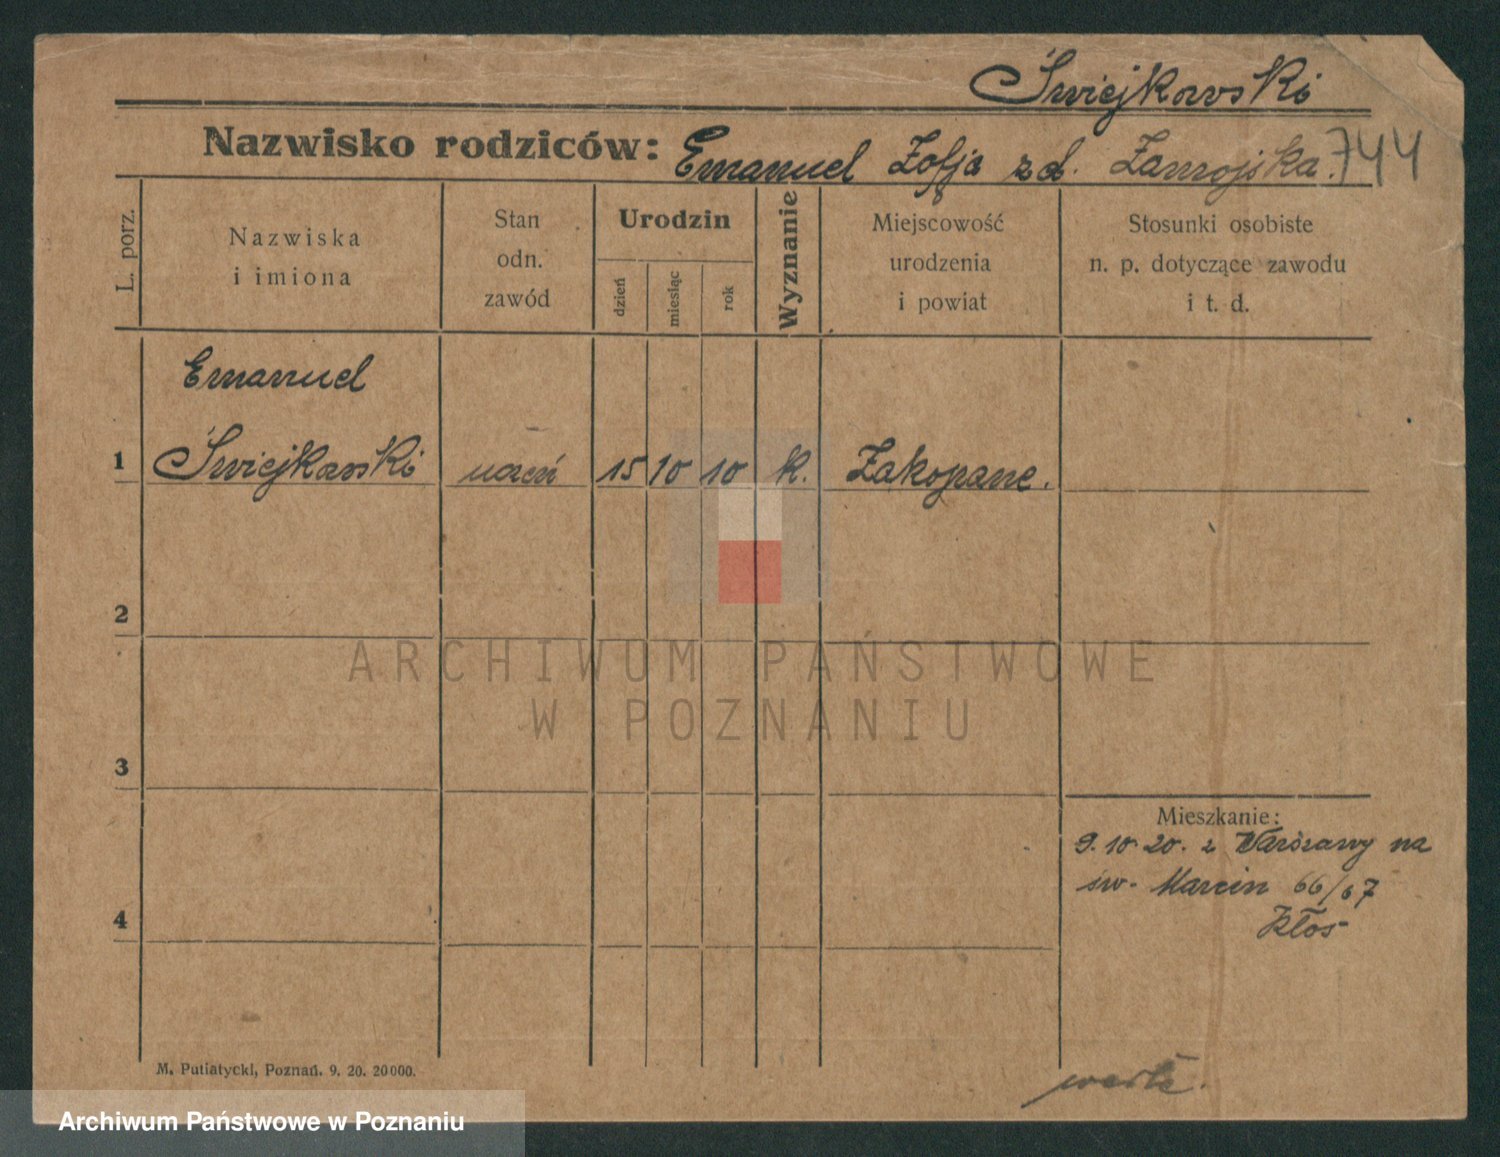 Świejkowski
Nazwisko rodziców: Emanuel Zofja zd. Zamojska. 744
L. porz.
Nazwiska
i imiona
Stan
odn.
zawód
Urodzin
dzień
miesiąc
rok
Wyznanie
Miejscowość
urodzenia
i powiat
Stosunki osobiste
n. p. dotyczące zawodu
i t. d.
Emanuel
1 Świejkowski uczeń 15 10 10 k. Zakopane.
2
ARCHIWUM PAŃSTWOWE
W POZNANIU
3
Mieszkanie:
9.10.20. z Warszawy na
św. Marcin 66/67
Kłos
4
M. Putiatycki, Poznań. 9. 20. 20000.
Archiwum Państwowe w Poznaniu